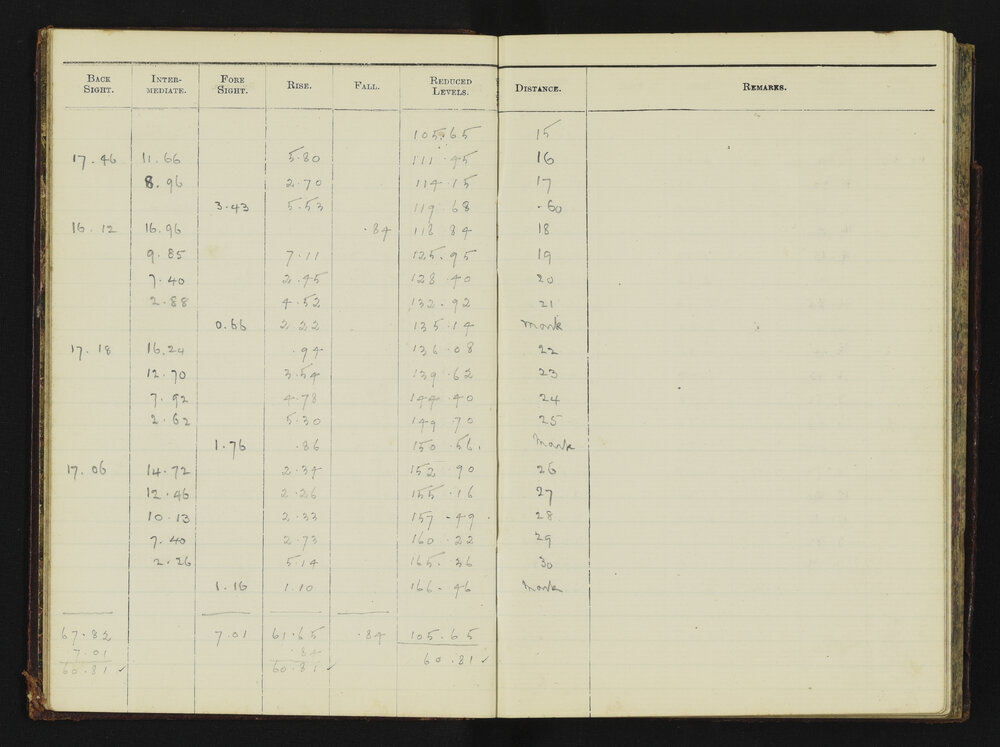 BACK SIGHT. INTER-MEDIATE. FORE SIGHT. RISE. FALL. REDUCED LEVELS. DISTANCE. REMARKS.
105.65 15
17.46 11.66 5.80 111.45 16
8.96 2.70 114.15 17
3.43 5.53 119.68 .60
16.12 16.96 .84 118.84 18
9.85 7.11 125.95 19
7.40 2.45 128.40 20
2.88 4.52 132.92 21
0.66 2.22 135.14 mark
17.18 16.24 .94 136.08 22
12.70 3.54 139.62 23
7.92 4.78 144.40 24
2.62 5.30 149.70 25
1.76 .86 150.56. mark
17.06 14.72 2.34 152.90 26
12.46 2.26 155.16 27
10.13 2.33 157.49 28
7.40 2.73 160.22 29
2.26 5.14 165.36 30
1.16 1.10 166.46 mark
67.82 7.01 61.65 .84 105.65
7.01 .84 60.81 ✓
60.81 ✓ 60.81 ✓